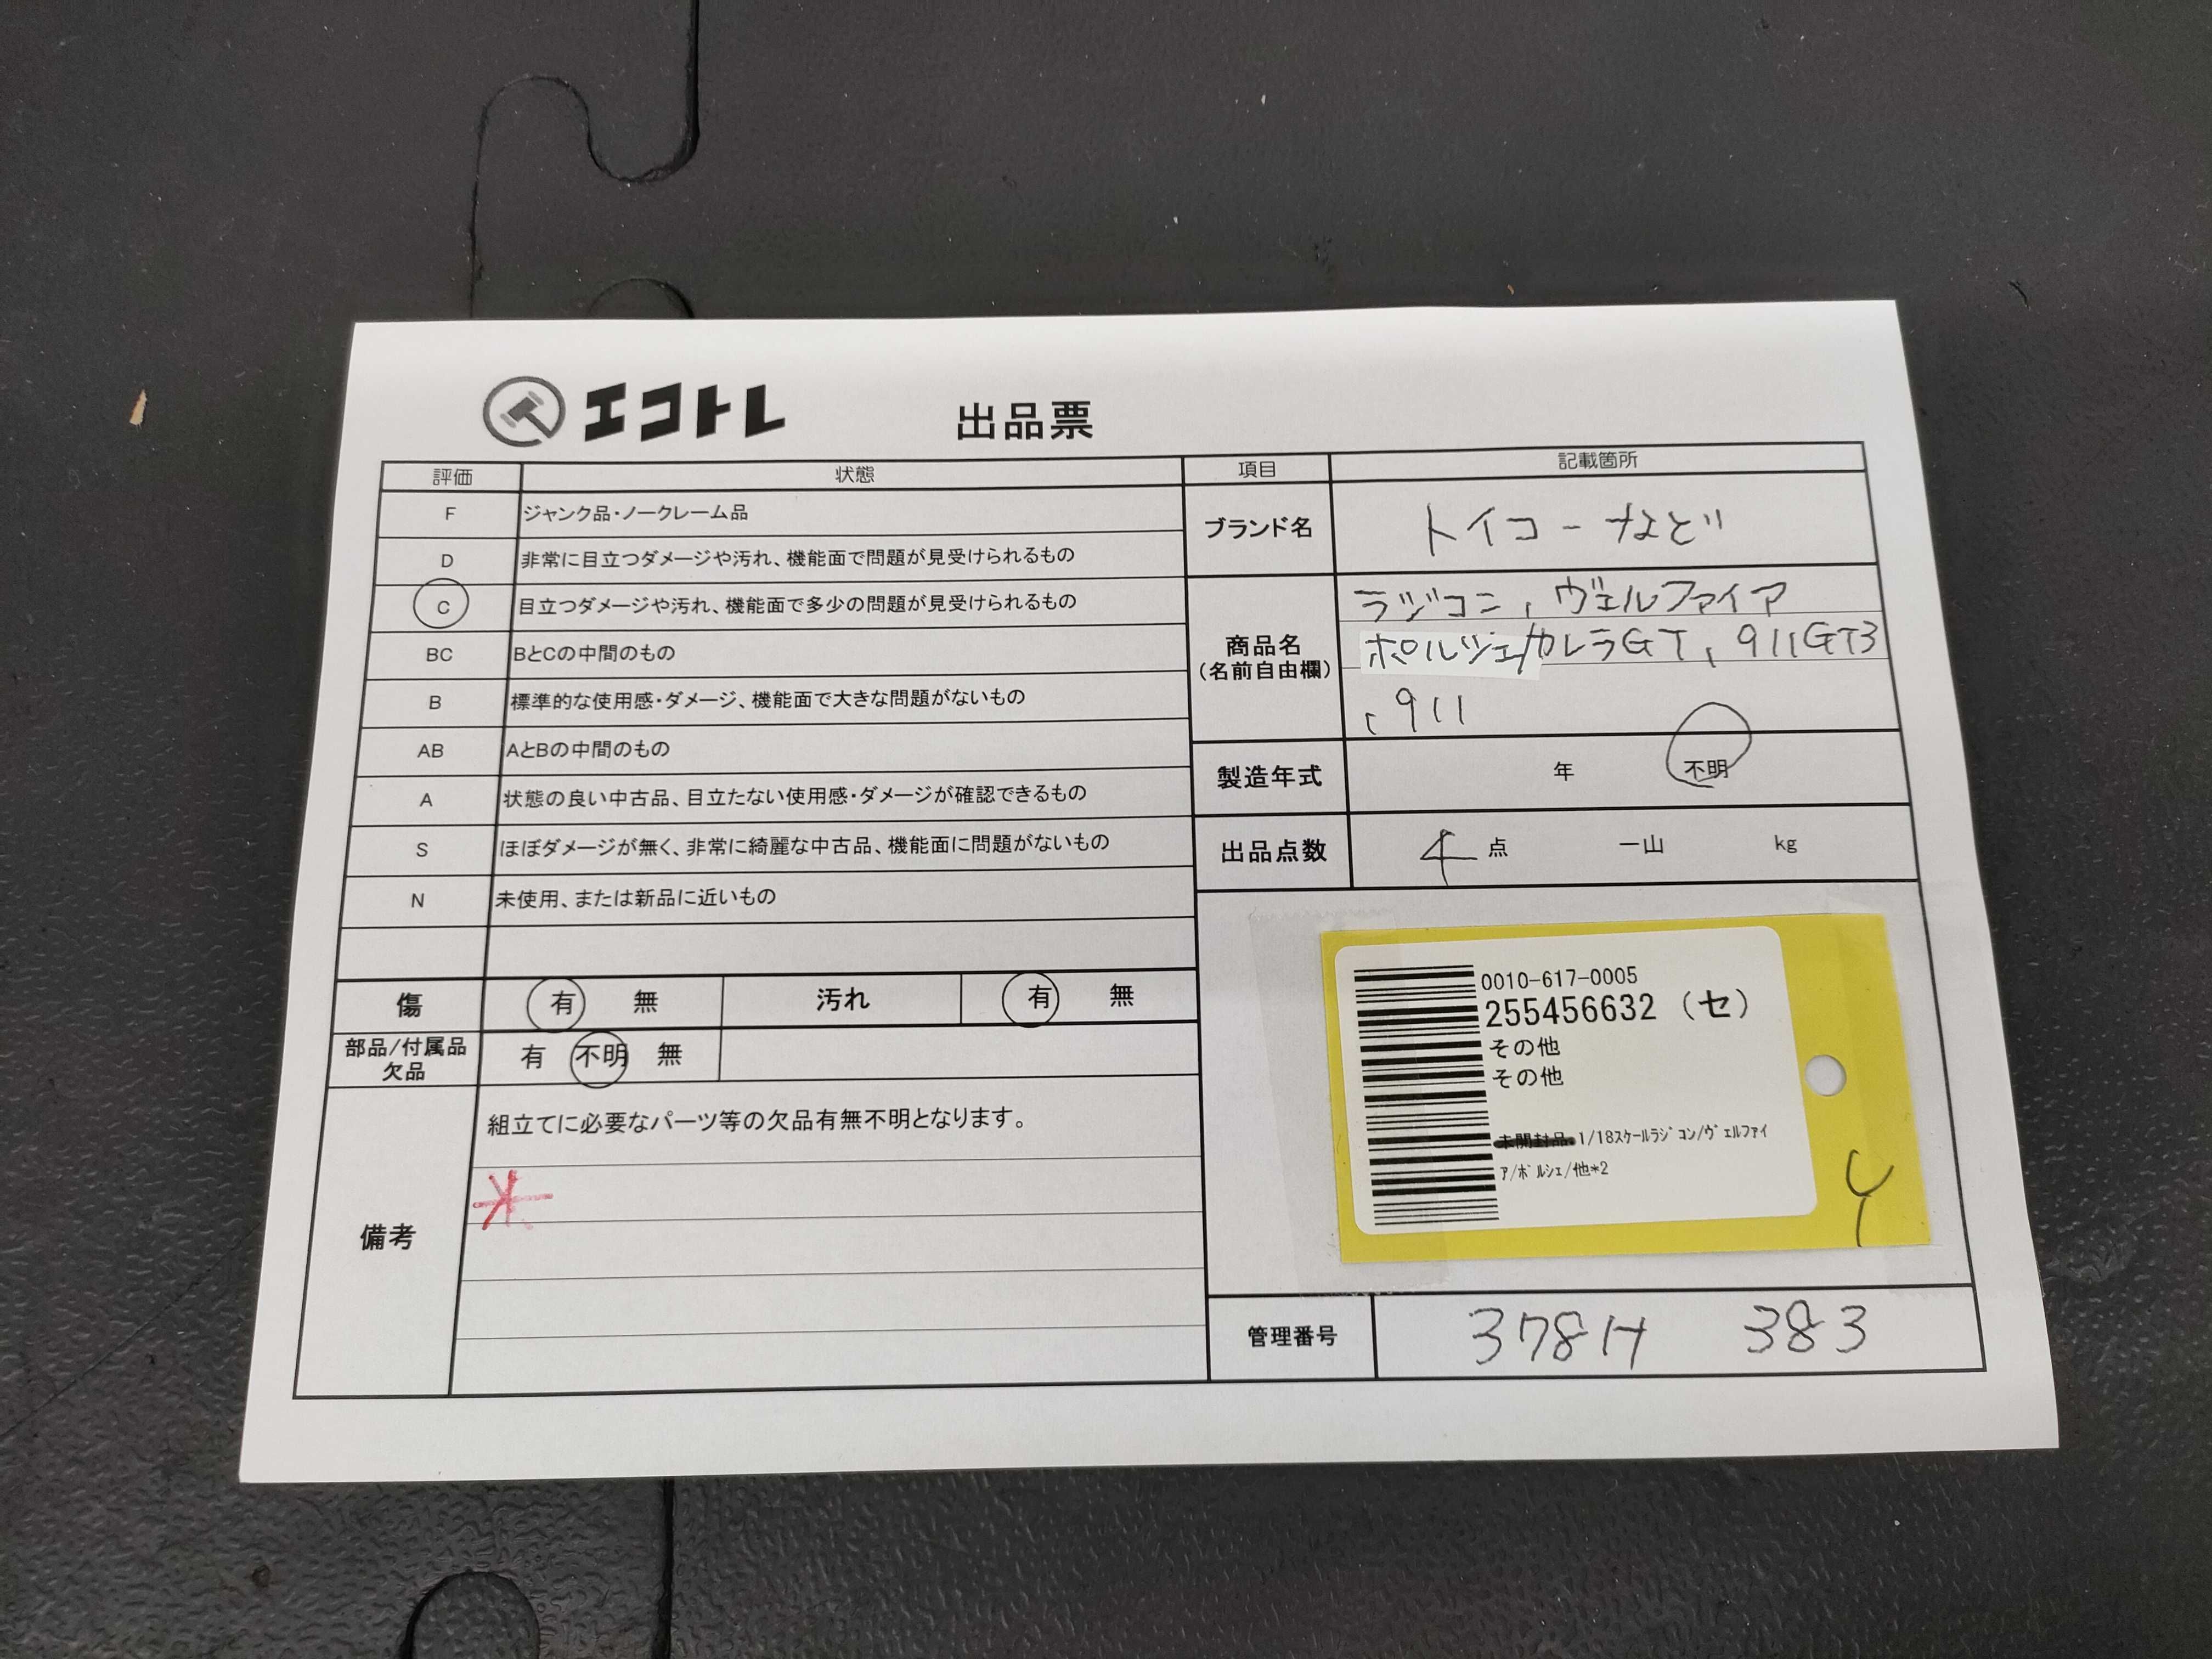 エコトレ 出品票
評価 状態
F ジャンク品・ノークレーム品
D 非常に目立つダメージや汚れ、機能面で問題が見受けられるもの
C 目立つダメージや汚れ、機能面で多少の問題が見受けられるもの
BC BとCの中間のもの
B 標準的な使用感・ダメージ、機能面で大きな問題がないもの
AB AとBの中間のもの
A 状態の良い中古品、目立たない使用感・ダメージが確認できるもの
S ほぼダメージが無く、非常に綺麗な中古品、機能面に問題がないもの
N 未使用、または新品に近いもの
傷 有 無 汚れ 有 無
部品/付属品
欠品 有 不明 無
備考
組立てに必要なパーツ等の欠品有無不明となります。
項目 記載箇所
ブランド名 トイコーなど
商品名
(名前自由欄)
ラジコン、ヴェルファイア
ポルシェ/カレラGT、911GT3
、911
製造年式 年 不明
出品点数 4点 一山 kg
0010-617-0005
255456632 (セ)
その他
その他
未開封品 1/18スケールラジコン/ヴェルファイ
ア/ポルシェ/他*2
管理番号 378H 383